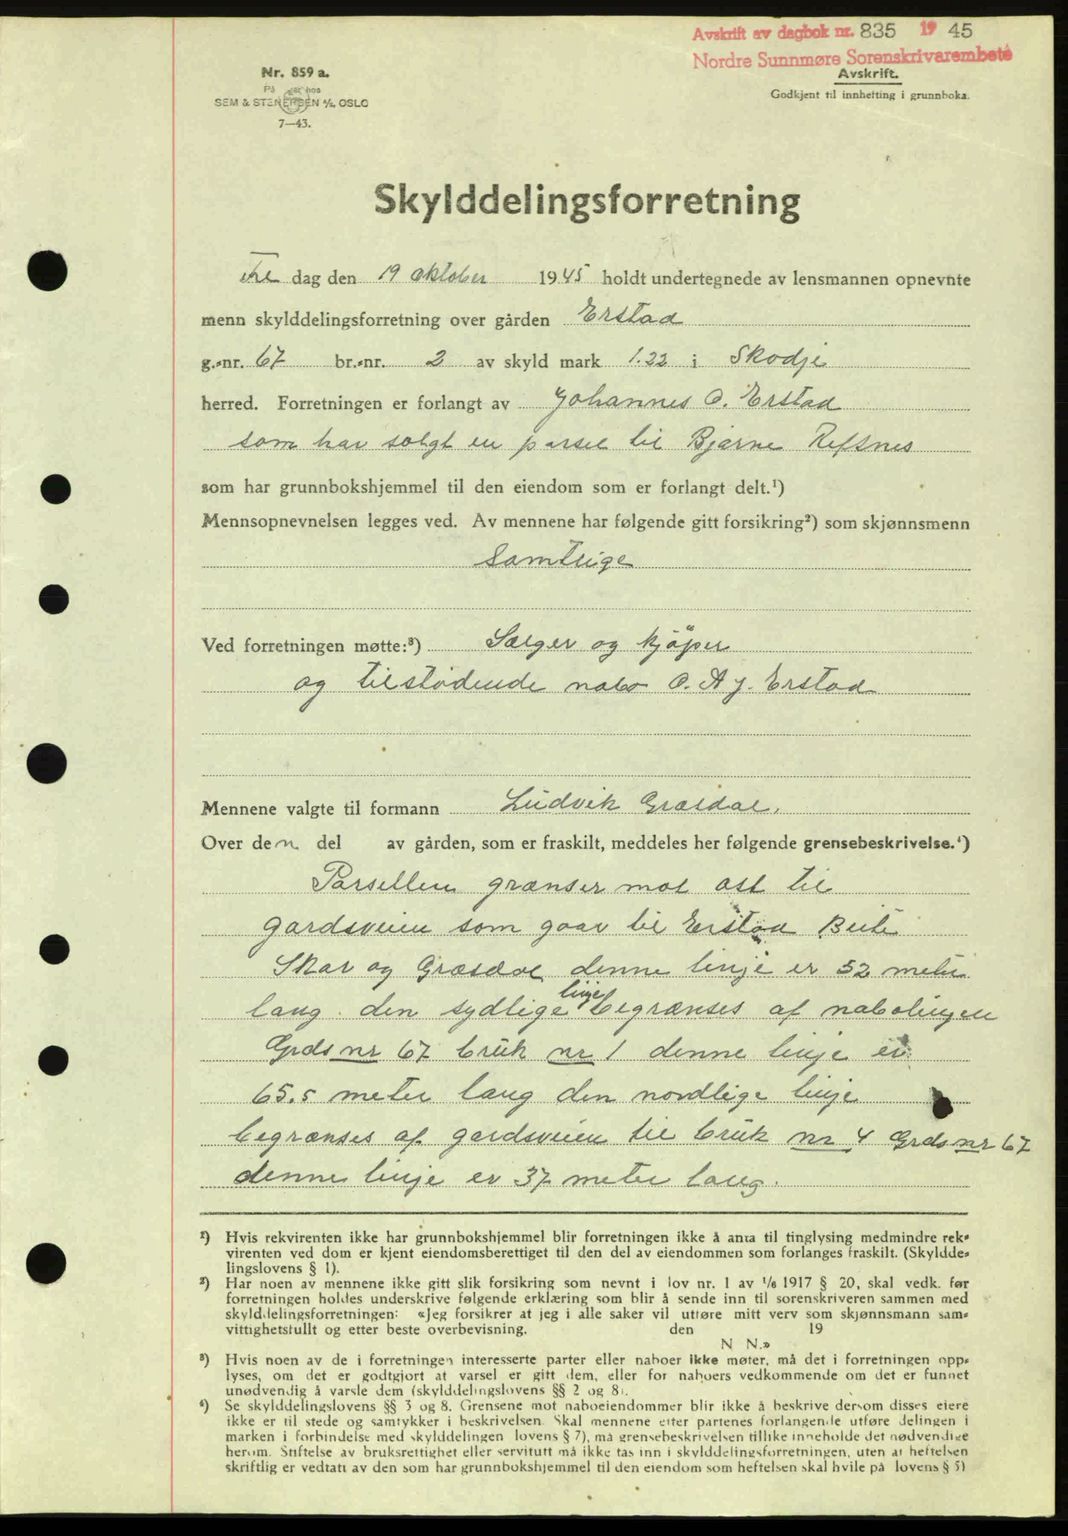 Avskrift av dagbok nr. 835 19 45
Nordre Sunnmøre Sorenskrivarembete
Nr. 859 a.
På hos
SEM & STENERSEN A/S, OSLO
7—43.
Avskrift.
Godkjent til innhefting i grunnboka.
Skylddelingsforretning
Fre dag den 19 oktober 1945 holdt undertegnede av lensmannen opnevnte
menn skylddelingsforretning over gården Erstad
g.-nr. 67 br.-nr. 2 av skyld mark 1.22 i Skodje
herred. Forretningen er forlangt av Johannes O. Erstad
som har solgt en parsel til Bjarne Refsnes
som har grunnbokshjemmel til den eiendom som er forlangt delt.¹)
Mennsopnevnelsen legges ved. Av mennene har følgende gitt forsikring²) som skjønnsmenn
Samtlige
Ved forretningen møtte:³) Sælger og kjöper
og tilstødende nabo O. A J. Erstad
Mennene valgte til formann Ludvik Græsdal.
Over den del av gården, som er fraskilt, meddeles her følgende grensebeskrivelse.⁴)
Parsellen grænser mot øst til
gardsveien som gaar til Erstad Beite
Skar og Græsdal denne linje er 52 meter
lang. den sydlige linje begrænses af nabolinjen
Grds nr 67 bruk nr 1 denne linje er
65.5 meter lang den nordlige linje
begrænses af gardsveien til bruk nr 4 Grds nr 67
denne linje er 37 meter lang.
¹) Hvis rekvirenten ikke har grunnbokshjemmel blir forretningen ikke å anta til tinglysing medmindre rek-
virenten ved dom er kjent eiendomsberettiget til den del av eiendommen som forlanges fraskilt. (Skyldde-
lingslovens § 1).
²) Har noen av mennene ikke gitt slik forsikring som nevnt i lov nr. 1 av 1/6 1917 § 20, skal vedk. før
forretningen holdes underskrive følgende erklæring som blir å sende inn til sorenskriveren sammen med
skylddelingsforretningen: «Jeg forsikrer at jeg i alle saker vil utføre mitt verv som skjønnsmann sam-
vittighetsfullt og etter beste overbevisning. den 19
N. N.»
³) Hvis noen av de i forretningen interesserte parter eller naboer ikke møter, må det i forretningen opp-
lyses, om det er godtgjort at varsel er gitt dem, eller for naboers vedkommende om det er funnet
unødvendig å varsle dem (skylddelingslovens §§ 2 og 8).
⁴) Se skylddelingslovens §§ 3 og 8. Grensene mot naboeiendommer blir ikke å beskrive dersom disses eiere
ikke er til stede og samtykker i beskrivelsen. Skal mennene etter partenes forlangende utføre delingen i
marken i forbindelse med skylddelingen (lovens § 7), må grensebeskrivelsen tillike inneholde det nødvendige
herom. Stiftelse av bruksrettighet eller servitutt må ikke tas inn i skylddelingsforretningen, uten at heftelsen
skriftlig er vedtatt av den som har grunnbokshjemmel til den eiendom som heftelsen skal hvile på (lovens § 5)